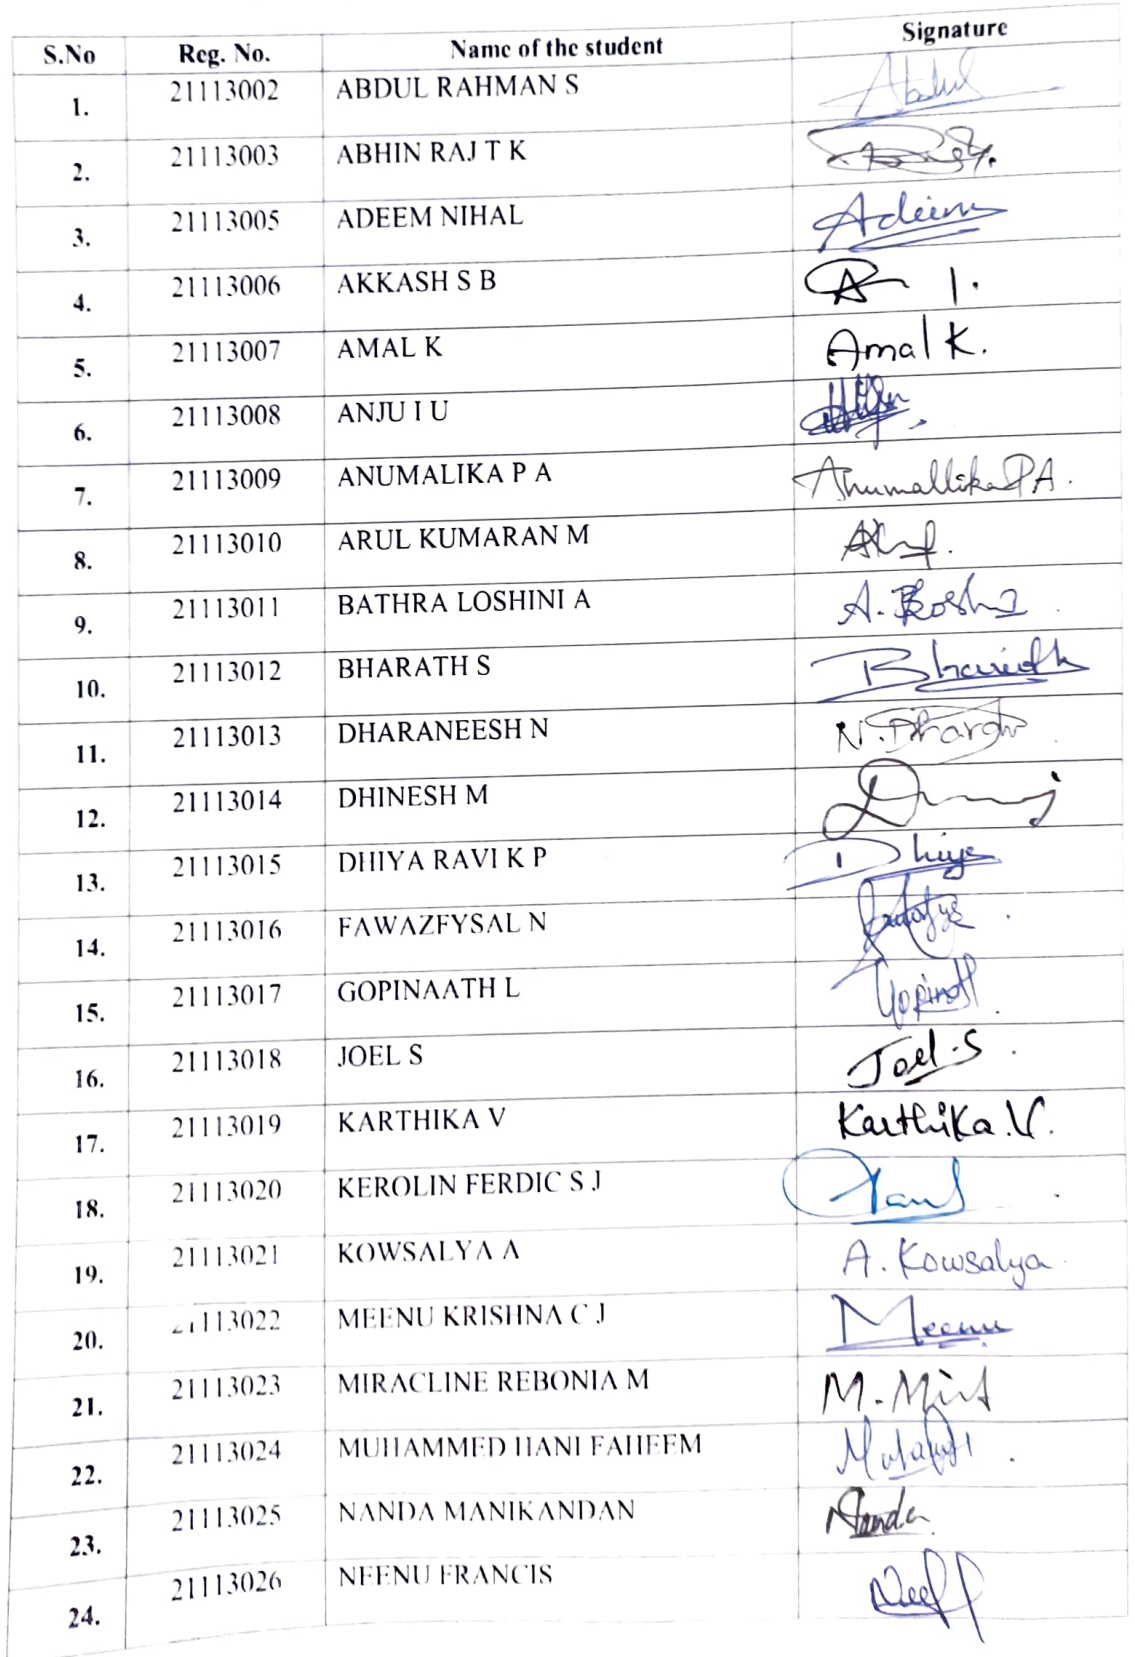 S.No Reg. No. Name of the student Signature
1. 21113002 ABDUL RAHMAN S Abdul
2. 21113003 ABHIN RAJ T K
3. 21113005 ADEEM NIHAL Adeem
4. 21113006 AKKASH S B
5. 21113007 AMAL K Amal K.
6. 21113008 ANJU I U
7. 21113009 ANUMALIKA P A Anumallika P A.
8. 21113010 ARUL KUMARAN M
9. 21113011 BATHRA LOSHINI A
10. 21113012 BHARATH S Bharath
11. 21113013 DHARANEESH N
12. 21113014 DHINESH M
13. 21113015 DHIYA RAVI K P Dhiya
14. 21113016 FAWAZFYSAL N
15. 21113017 GOPINAATH L Gopinath
16. 21113018 JOEL S Joel.S
17. 21113019 KARTHIKA V Karthika.V.
18. 21113020 KEROLIN FERDIC S J
19. 21113021 KOWSALYA A A. Kowsalya
20. 21113022 MEENU KRISHNA C J Meenu
21. 21113023 MIRACLINE REBONIA M
22. 21113024 MUHAMMED HANI FAHEEM
23. 21113025 NANDA MANIKANDAN Nanda
24. 21113026 NEENU FRANCIS